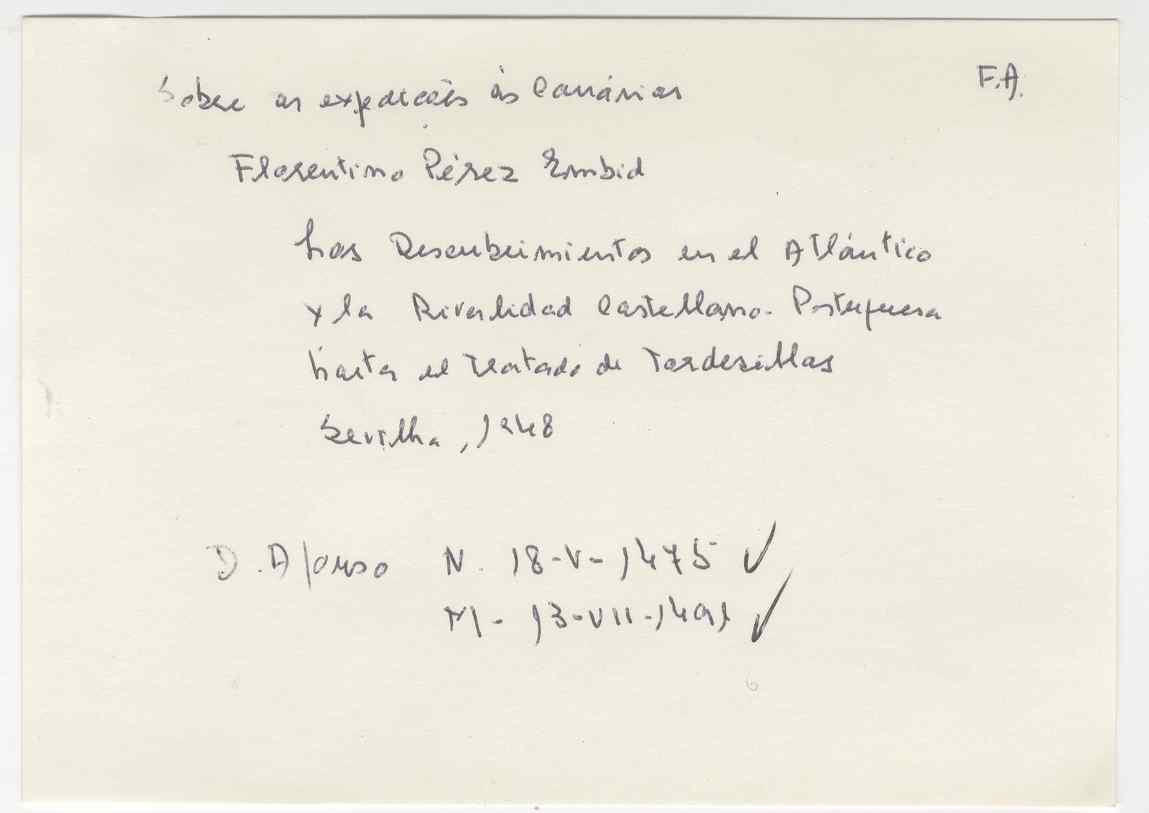 Sobre as expedições às Canárias
F.A.
Florentino Pérez Embid
Los Descubrimientos en el Atlántico
y la Rivalidad Castellano-Portuguesa
hasta el Tratado de Tordesillas
Sevilha, 1948
D. Afonso N. 18-V-1475 ✓
M- 13-VII-1491 ✓